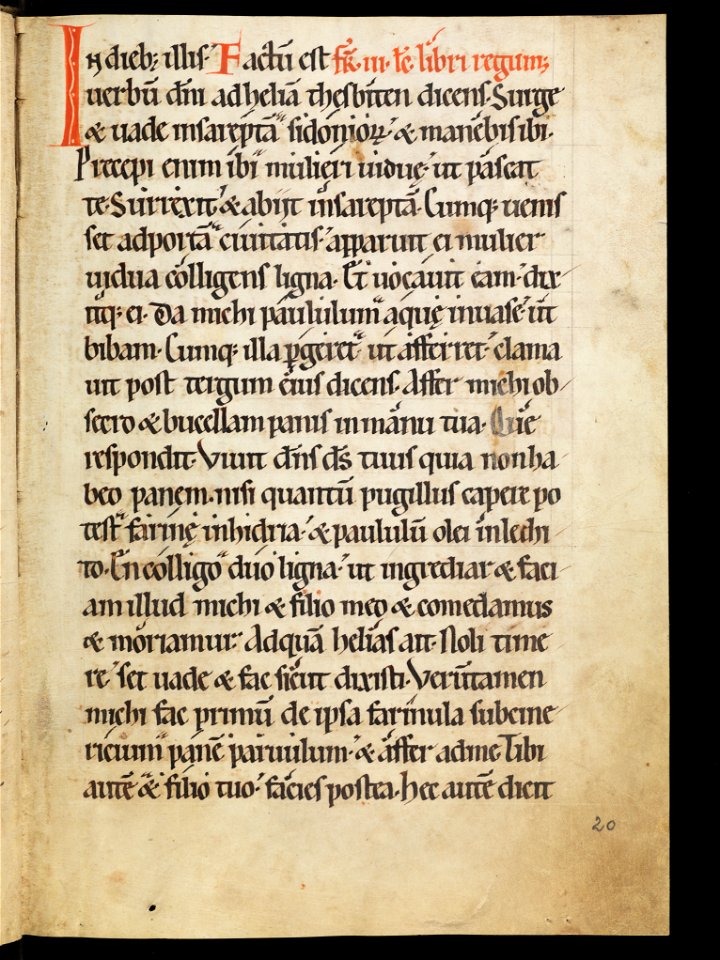 In dieb; illis. Factū est fr̄. iii. lc̄. libri regum;
uerbū dn̄i ad heliā thesbiten dicens. Surge
& uade in sareptā sidonioꝝ. & manebis ibi.
Precepi enim ibi mulieri uiduę. ut pascat
te. Surrexit & abiit in sareptā. Cumq; uenis
set ad portā ciuitatis. apparuit ei mulier
uidua colligens ligna. Et uocauit eam. dix
itq; ei. Da michi paululum aquę in uase. ut
bibam. Cumq; illa ꝑgeret ut afferret. clama
uit post tergum eius dicens. Affer michi ob
secro & bucellam panis in manu tua. Quę
respondit. Viuit dn̄s ds̄ tuus quia non ha
beo panem. nisi quantū pugillus capere po
test farinę in hidria. & paululū olei in lechi
to. En colligo duo ligna. ut ingrediar & faci
am illud michi & filio meo & comedamus
& moriamur. Ad quā helias ait. Noli time
re. set uade & fac sicut dixisti. Verūtamen
michi fac primū de ipsa farinula subcine
ricium panē paruulum. & affer ad me. Tibi
autē & filio tuo. facies postea. hec autē dicit
20